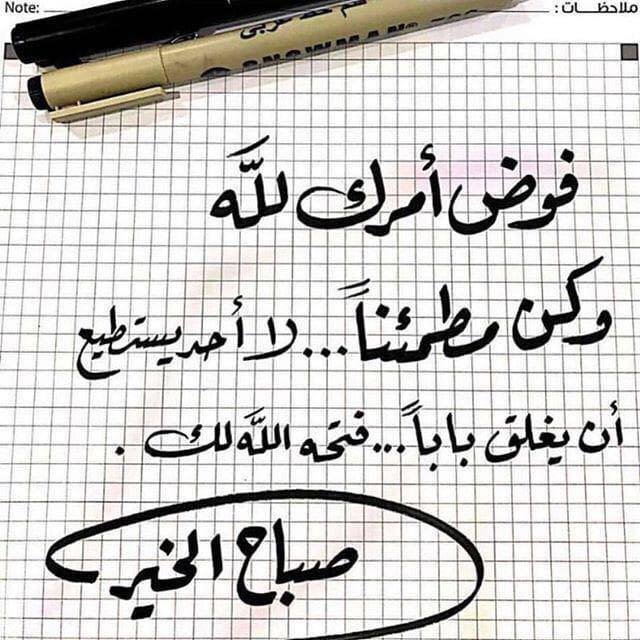 Note: ملاحظات :
SNOWMAN
فوض أمرك للَّه
وكن مطمئناً...لا أحد يستطيع
أن يغلق باباً...فتحه اللَّه لك .
صباح الخير